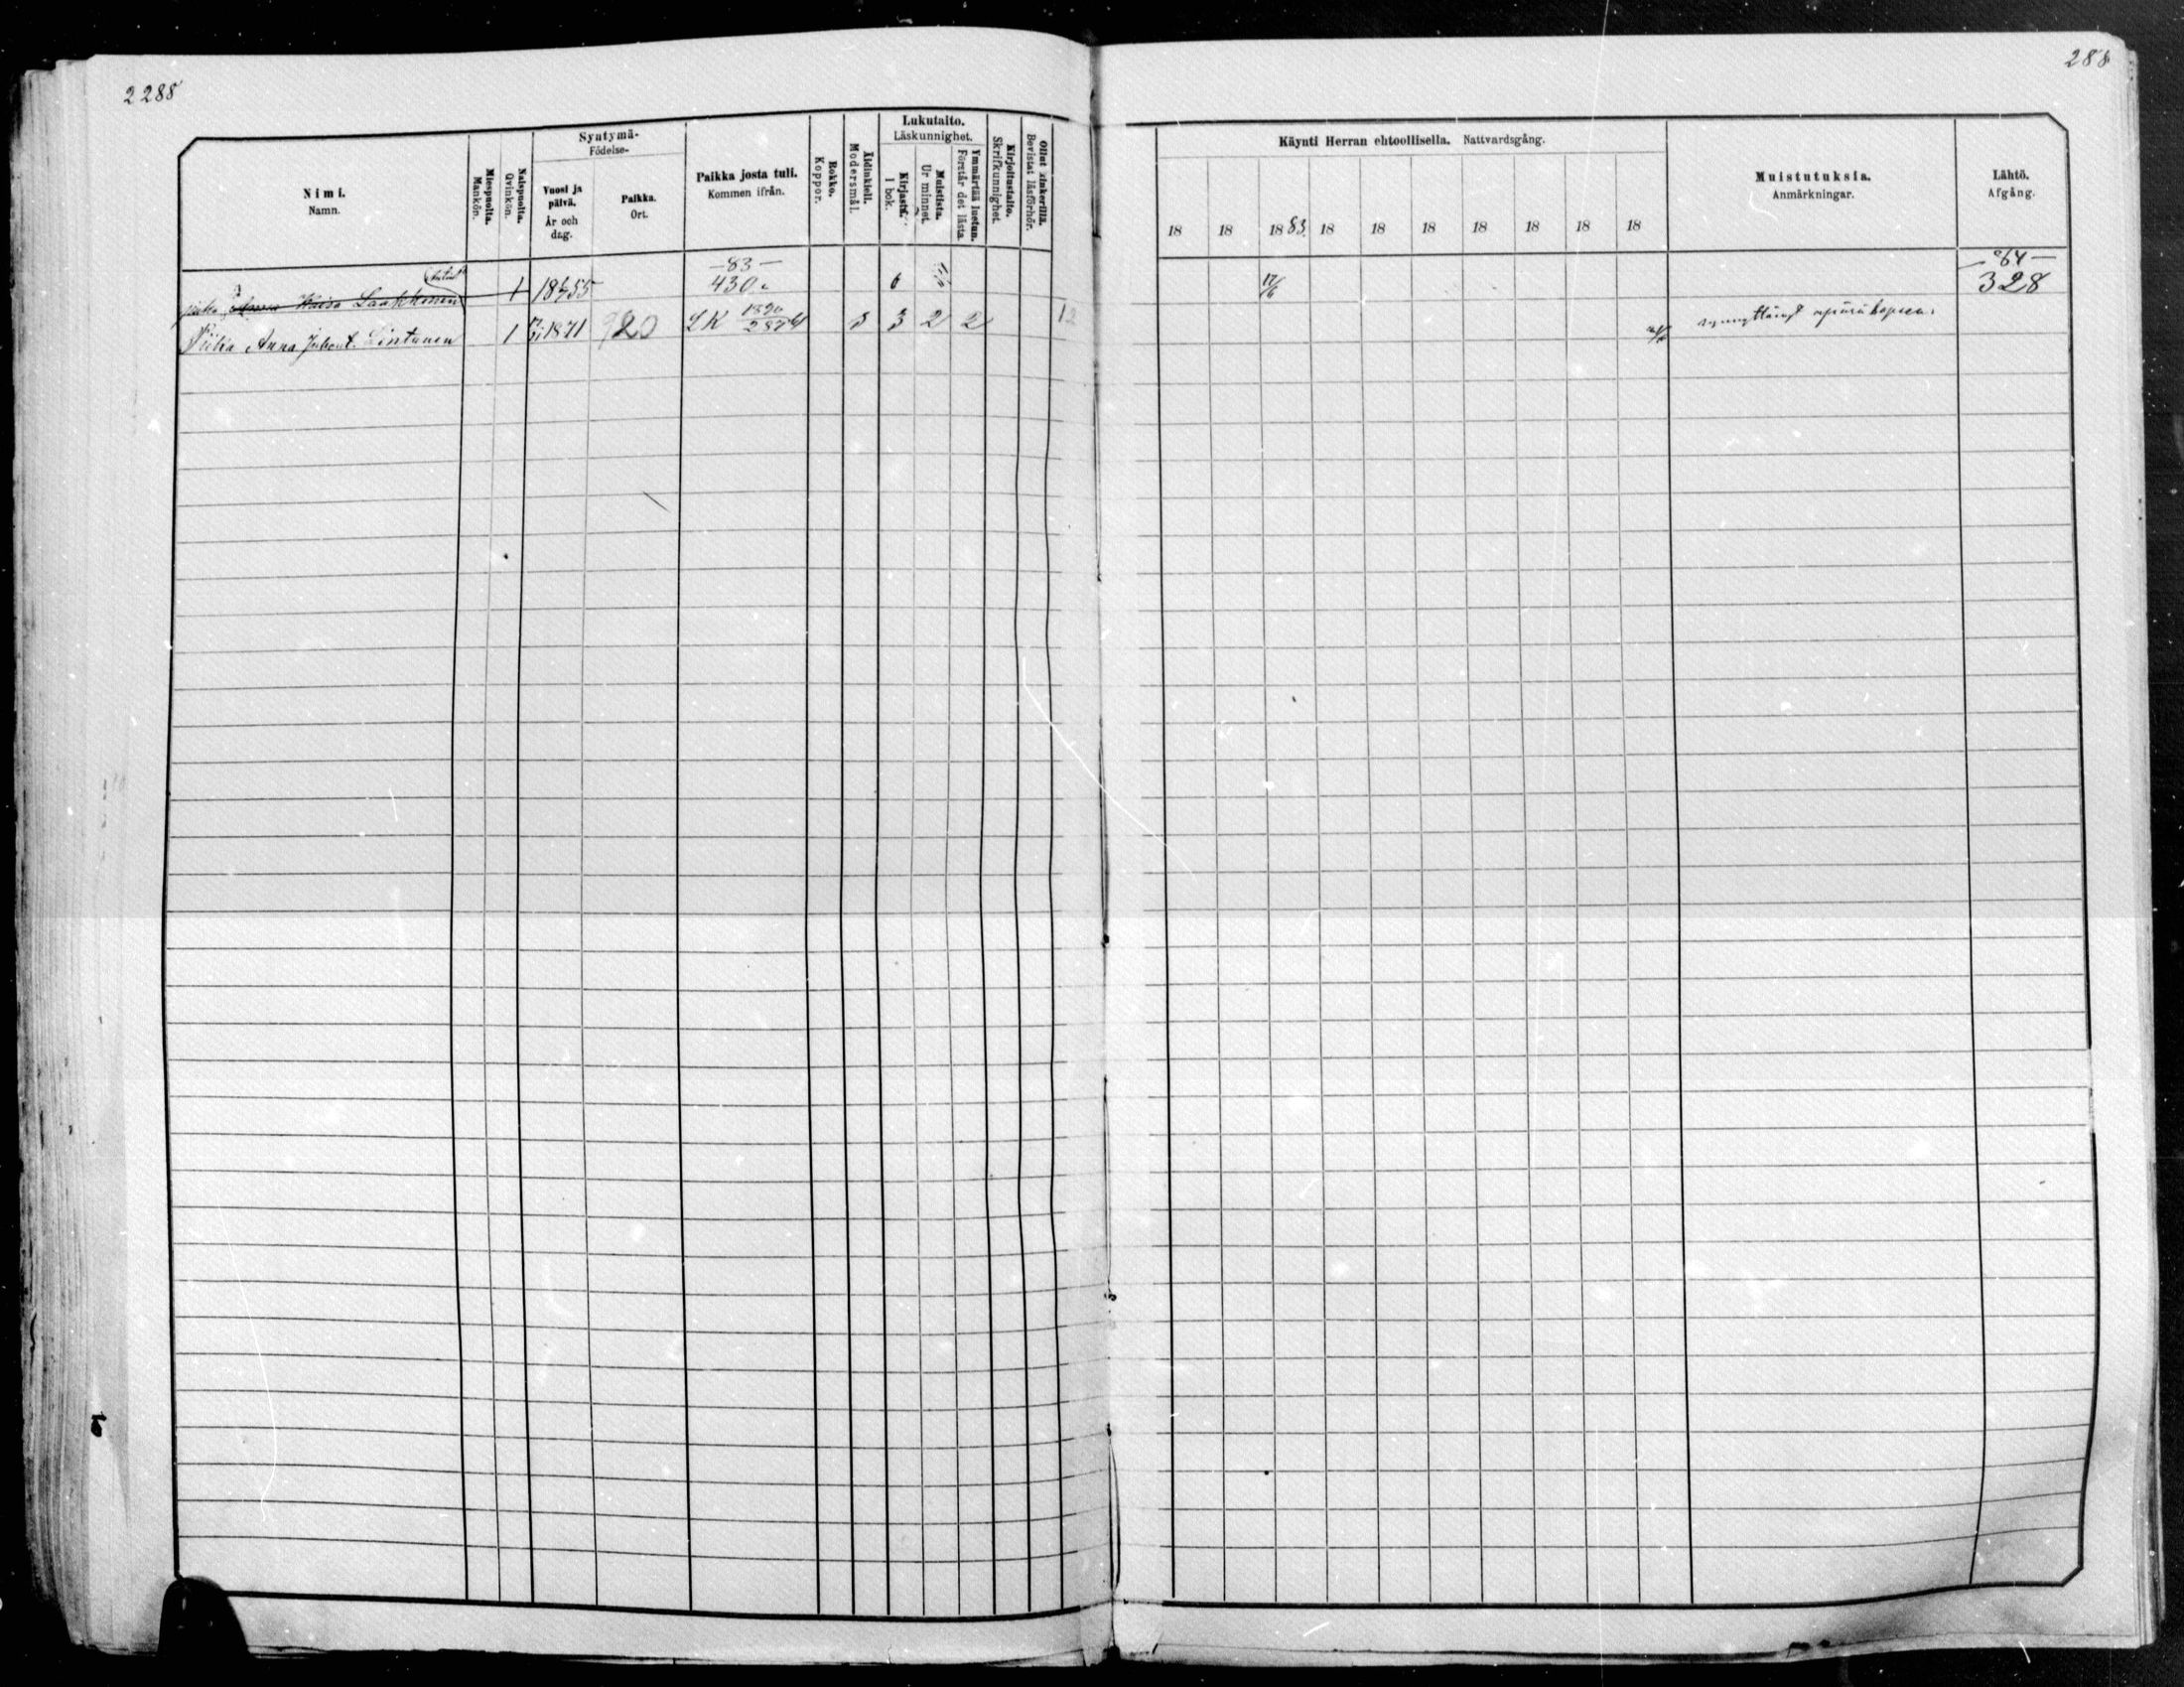 2288
288
Nimi.
Namn.
Miespuolta.
Mankön.
Naispuolta.
Qvinkön.
Syntymä-
Födelse-
Vuosi ja
päivä.
År och
dag.
Paikka.
Ort.
Paikka josta tuli.
Kommen ifrån.
Rokko.
Koppor.
Äidinkieli.
Modersmål.
Lukutaito.
Läskunnighet.
Kirjasta.
I bok.
Muistista.
Ur minnet.
Ymmärtää luetun.
Förstår det lästa.
Kirjoitustaito.
Skrifkunnighet.
Ollut kinkerillä.
Bevistat läsförhör.
Käynti Herran ehtoollisella. Nattvardsgång.
18 18 1883. 18 18 18 18 18 18 18
Muistutuksia.
Anmärkningar.
Lähtö.
Afgång.
Kaisa Laakkonen 1 55 -83- 430. 6 17/6 328
Piika Anna Juhont. Lintunen 1 1871 920 LK 1890 3 3 2 2 12